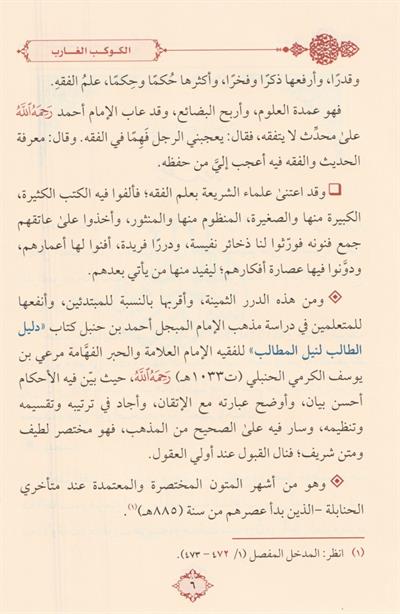 الكوكب الغارب
وقدرًا، وأرفعها ذكرًا وفخرًا، وأكثرها حُكمًا وحِكمًا، علمُ الفقهِ.
فهو عمدة العلوم، وأربح البضائع، وقد عاب الإمام أحمد رَحِمَهُ ٱللَّهُ
علىٰ محدِّث لا يتفقه، فقال: يعجبني الرجل فَهِمًا في الفقه. وقال: معرفة
الحديث والفقه فيه أعجب إليَّ من حفظه.
❑ وقد اعتنىٰ علماء الشريعة بعلم الفقه؛ فألفوا فيه الكتب الكثيرة،
الكبيرة منها والصغيرة، المنظوم منها والمنثور، وأخذوا علىٰ عاتقهم
جمع فنونه فورّثوا لنا ذخائر نفيسة، ودررًا فريدة، أفنوا لها أعمارهم،
ودوَّنوا فيها عصارة أفكارهم؛ ليفيد منها من يأتي بعدهم.
◈ ومن هذه الدرر الثمينة، وأقربها بالنسبة للمبتدئين، وأنفعها
للمتعلمين في دراسة مذهب الإمام المبجل أحمد بن حنبل كتاب «دليل
الطالب لنيل المطالب» للفقيه الإمام العلامة والحبر الفهَّامة مرعي بن
يوسف الكرمي الحنبلي (ت١٠٣٣هـ) رَحِمَهُ ٱللَّهُ، حيث بيّن فيه الأحكام
أحسن بيان، وأوضح عبارته مع الإتقان، وأجاد في ترتيبه وتقسيمه
وتنظيمه، وسار فيه علىٰ الصحيح من المذهب، فهو مختصر لطيف
ومتن شريف؛ فنال القبول عند أولي العقول.
◈ وهو من أشهر المتون المختصرة والمعتمدة عند متأخري
الحنابلة -الذين بدأ عصرهم من سنة (٨٨٥هـ)(١).
(١) انظر: المدخل المفصل (١/ ٤٧٢ - ٤٧٣).
٦